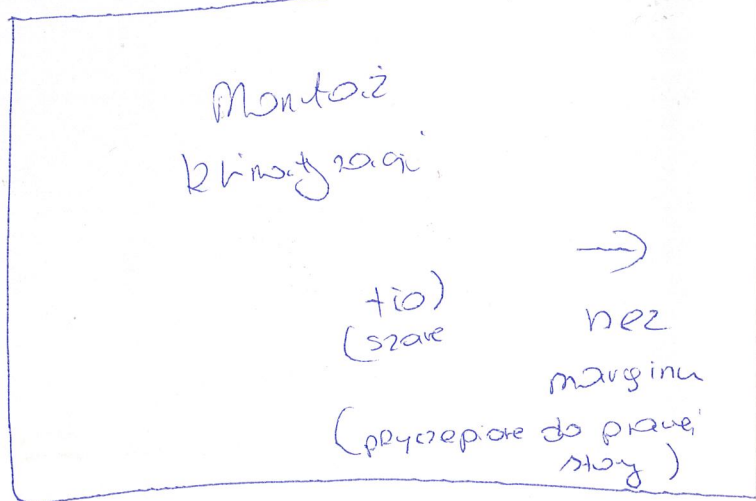 Montaż
klimatyzacji
→
tło)
(szare
bez
marginu
(przyczepione do prawej
strony)